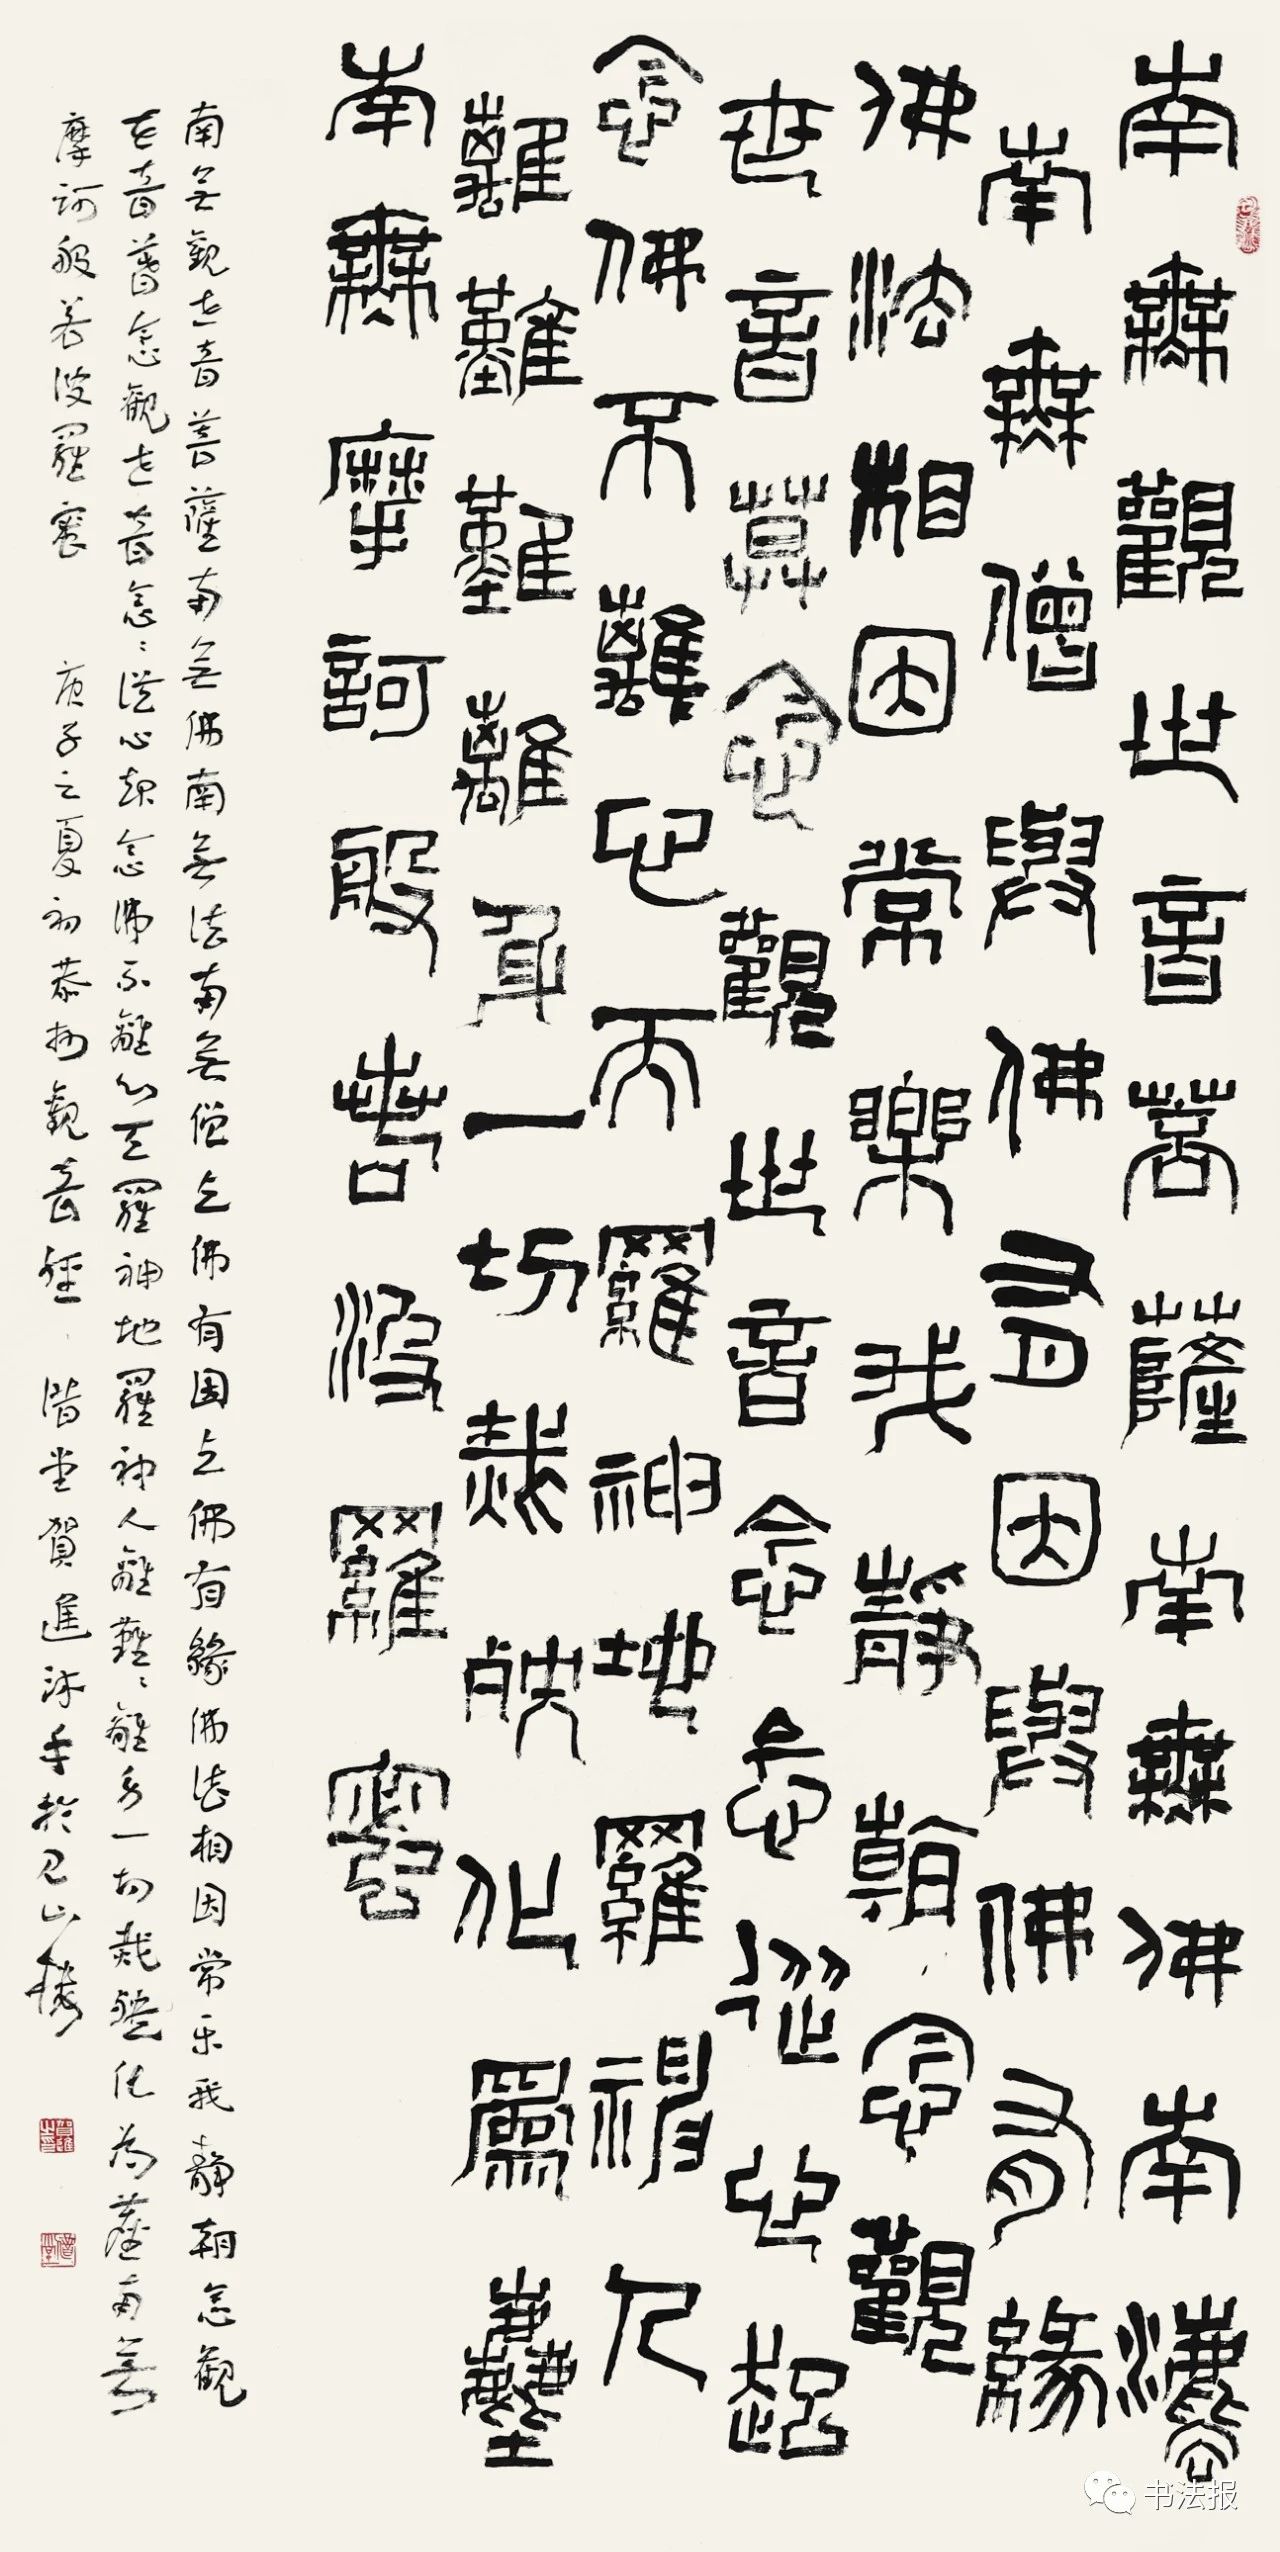 南無觀世音菩薩南無佛南無灋
南無僧與佛有因與佛有緣
佛法相因常樂我靜朝念觀
世音莫念觀世音念念從心起
念佛不離心天羅神地羅神人
離難難離身一切災殃化為塵
南無摩訶般若波羅密
南无觀世音菩薩南无佛南無法南無僧与佛有因与佛有緣佛法相因常乐我靜朝念觀
世音暮念觀世音念〻從心起念佛不離心天羅神地羅神人離難〻離身一切災殃化為塵南無
摩訶般若波羅密 庚子之夏初恭抄觀音經 階堂賀進沐手於見山樓
书法报